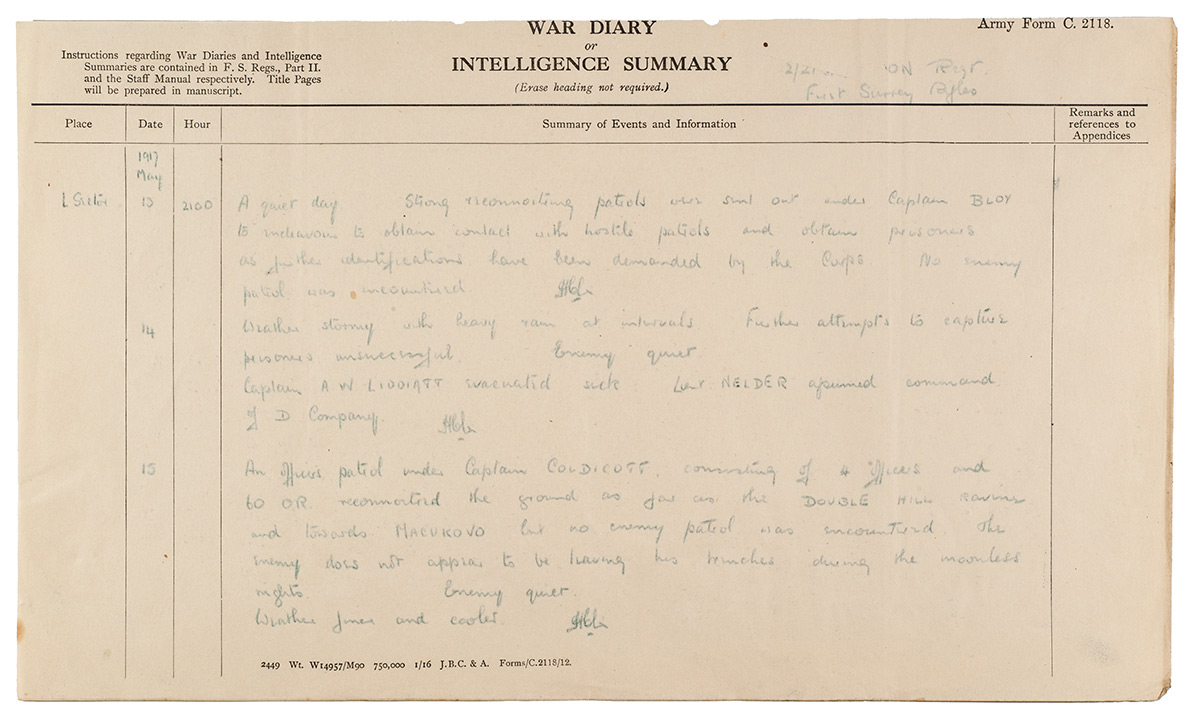 WAR DIARY
or
INTELLIGENCE SUMMARY
(Erase heading not required.)
Army Form C. 2118.
Instructions regarding War Diaries and Intelligence
Summaries are contained in F. S. Regs., Part II.
and the Staff Manual respectively. Title Pages
will be prepared in manuscript.
2/21 ON Regt.
First Surrey Rifles
Place Date Hour Summary of Events and Information Remarks and references to Appendices
1917
May
L Sector 13 2100 A quiet day Strong reconnoitring patrols were sent out under Captain BLOY
to endeavour to obtain contact with hostile patrols and obtain prisoners
as further identifications have been demanded by the Corps. No enemy
patrol was encountered.
14 Weather stormy with heavy rain at intervals Further attempts to capture
prisoners unsuccessful. Enemy quiet.
Captain A W LIDDIATT evacuated sick Lieut NELDER assumed command
of D Company.
15 An officers patrol under Captain COLDICOTT, consisting of 4 officers and
60 OR. reconnoitred the ground as far as the DOUBLE HILL ravine
and towards MACUKOVO but no enemy patrol was encountered. The
enemy does not appear to be leaving his trenches during the moonless
nights. Enemy quiet.
Weather finer and cooler.
2449 Wt. W14957/M90 750,000 1/16 J.B.C. & A. Forms/C.2118/12.